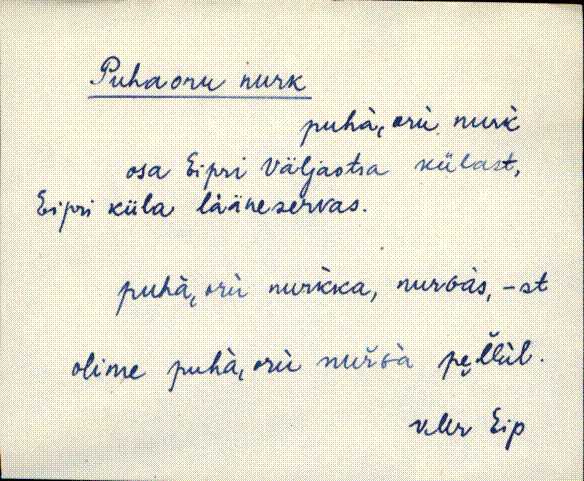 Puhaoru nurk
puhà, orù nurk̀
osa Eipri Väljaotsa külast,
Eipri küla lääneservas.
puhà, orù nurkka, nurGàs, -st
olime puhà, orù
VMr Eip